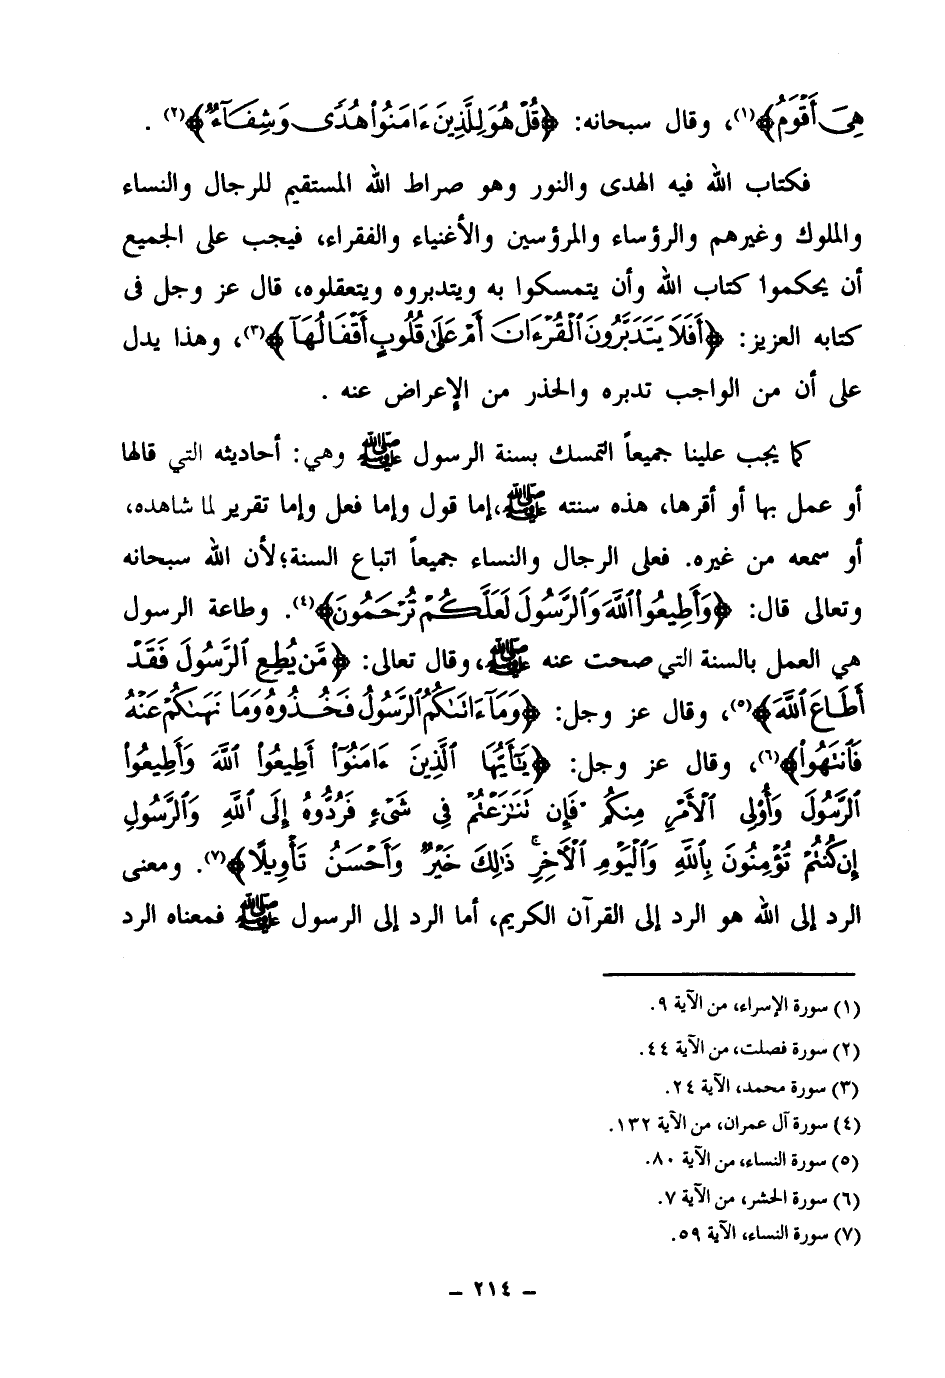 هِيَ أَقْوَمُ﴾(١)، وقال سبحانه: ﴿قُلْ هُوَ لِلَّذِينَ ءَامَنُوا۟ هُدًى وَشِفَآءٌ﴾(٢) .
فكتاب الله فيه الهدى والنور وهو صراط الله المستقيم للرجال والنساء
والملوك وغيرهم والرؤساء والمرؤسين والأغنياء والفقراء، فيجب على الجميع
أن يحكموا كتاب الله وأن يتمسكوا به ويتدبروه ويتعقلوه، قال عز وجل فى
كتابه العزيز: ﴿أَفَلَا يَتَدَبَّرُونَ ٱلْقُرْءَانَ أَمْ عَلَىٰ قُلُوبٍ أَقْفَالُهَآ﴾(٣)، وهذا يدل
على أن من الواجب تدبره والحذر من الإعراض عنه .
كما يجب علينا جميعاً التمسك بسنة الرسول ﷺ وهي: أحاديثه التي قالها
أو عمل بها أو أقرها، هذه سنته ﷺ،إما قول وإما فعل وإما تقرير لما شاهده،
أو سمعه من غيره. فعلى الرجال والنساء جميعاً اتباع السنة؛لأن الله سبحانه
وتعالى قال: ﴿وَأَطِيعُوا۟ ٱللَّهَ وَٱلرَّسُولَ لَعَلَّكُمْ تُرْحَمُونَ﴾(٤). وطاعة الرسول
هي العمل بالسنة التي صحت عنه ﷺ، وقال تعالى: ﴿مَّن يُطِعِ ٱلرَّسُولَ فَقَدْ
أَطَاعَ ٱللَّهَ﴾(٥)، وقال عز وجل: ﴿وَمَآ ءَاتَىٰكُمُ ٱلرَّسُولُ فَخُذُوهُ وَمَا نَهَىٰكُمْ عَنْهُ
فَٱنتَهُوا۟﴾(٦)، وقال عز وجل: ﴿يَـٰٓأَيُّهَا ٱلَّذِينَ ءَامَنُوٓا۟ أَطِيعُوا۟ ٱللَّهَ وَأَطِيعُوا۟
ٱلرَّسُولَ وَأُو۟لِى ٱلْأَمْرِ مِنكُمْ فَإِن تَنَـٰزَعْتُمْ فِى شَىْءٍ فَرُدُّوهُ إِلَى ٱللَّهِ وَٱلرَّسُولِ
إِن كُنتُمْ تُؤْمِنُونَ بِٱللَّهِ وَٱلْيَوْمِ ٱلْـَٔاخِرِ ۚ ذَٰلِكَ خَيْرٌ وَأَحْسَنُ تَأْوِيلًا﴾(٧). ومعنى
الرد إلى الله هو الرد إلى القرآن الكريم، أما الرد إلى الرسول ﷺ فمعناه الرد
(١) سورة الإسراء، من الآية ٩.
(٢) سورة فصلت، من الآية ٤٤.
(٣) سورة محمد، الآية ٢٤.
(٤) سورة آل عمران، من الآية ١٣٢.
(٥) سورة النساء، من الآية ٨٠.
(٦) سورة الحشر، من الآية ٧.
(٧) سورة النساء، الآية ٥٩.
– ٢١٤ –